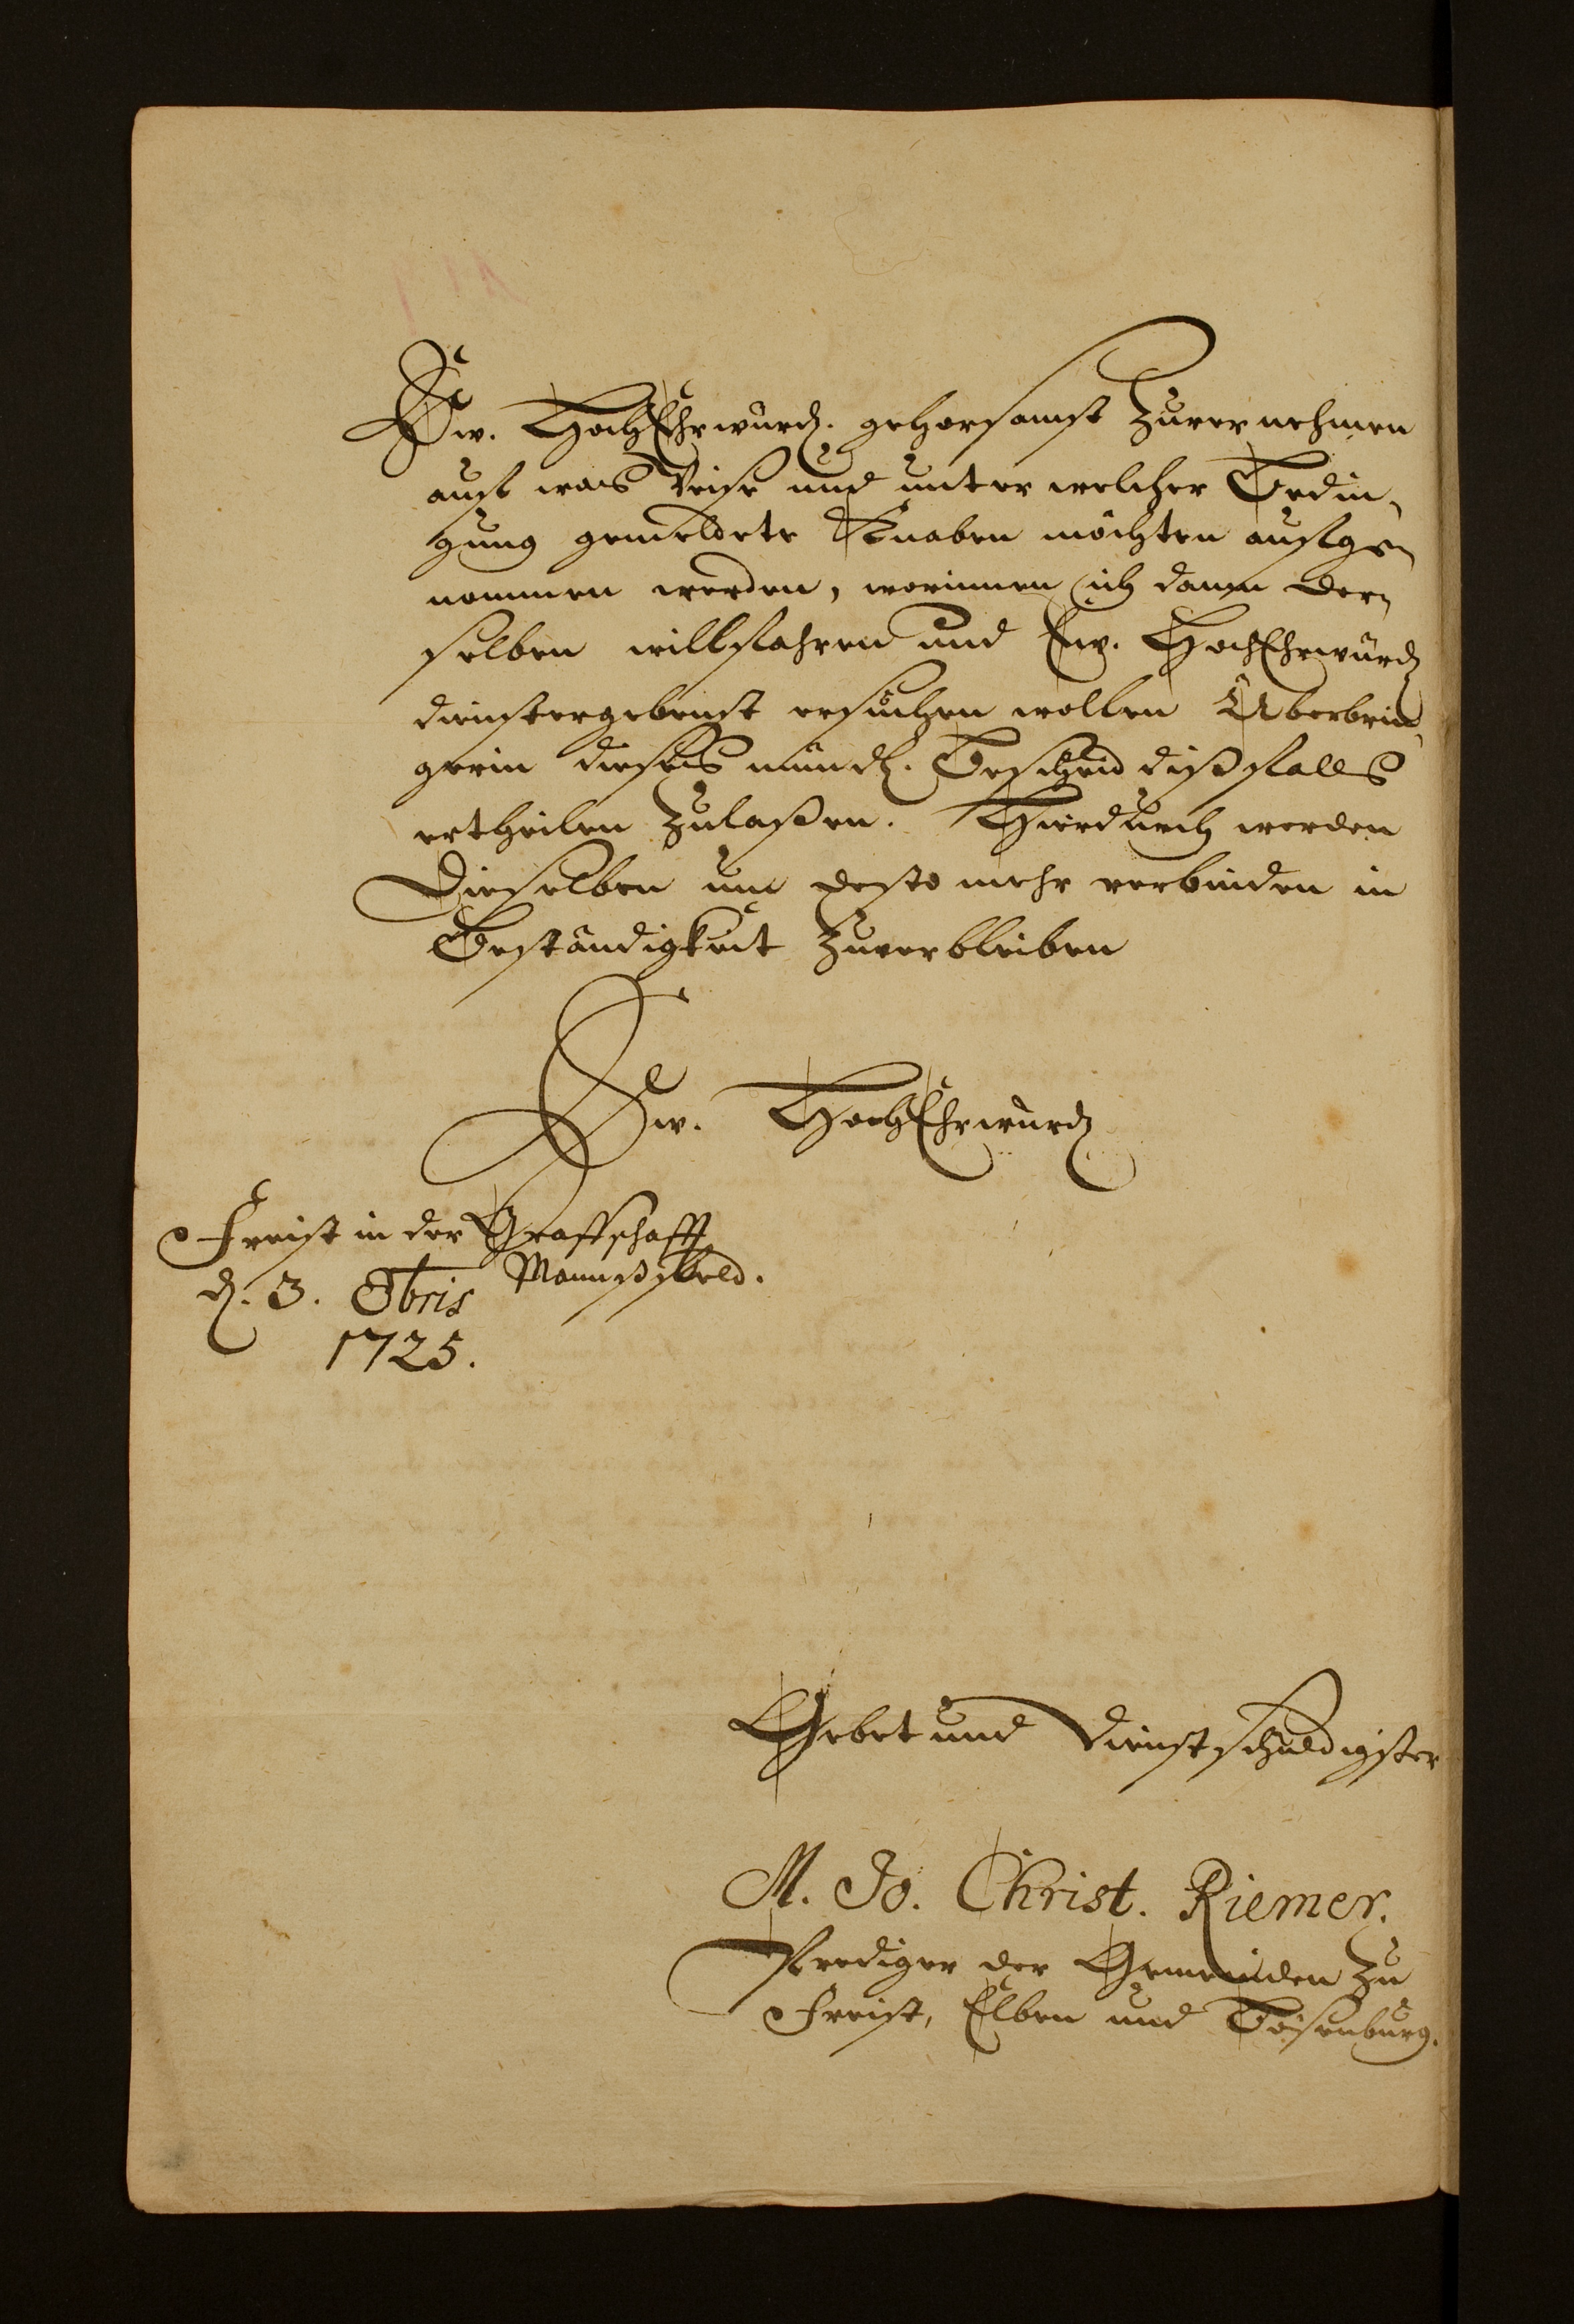 Ew. HochEhrwürd. gehorsamst zuvernehmen
auf was Weise und unter welcher Bedin-
gung gemeldete Knaben möchten aufge-
nommen werden, worinnen ich dann der-
selben willfahren und Ew. HochEhrwürd
dienstergebenst ersuchen wollen Überbrin-
gerin dieses mündl. Bescheid dißfalls
ertheilen zulaßen. Hierdurch werden
Dieselben um desto mehr verbinden in
Beständigkeit zuverbleiben
Ew. HochEhrwürd
Freist in der Graffschafft
Mannßfeld.
d. 3. 8bris
1725.
Gebet und dienstschuldigster
M. Jo. Christ. Riemer.
Prediger der Gemeinden zu
Freist, Elben und Bösenburg.